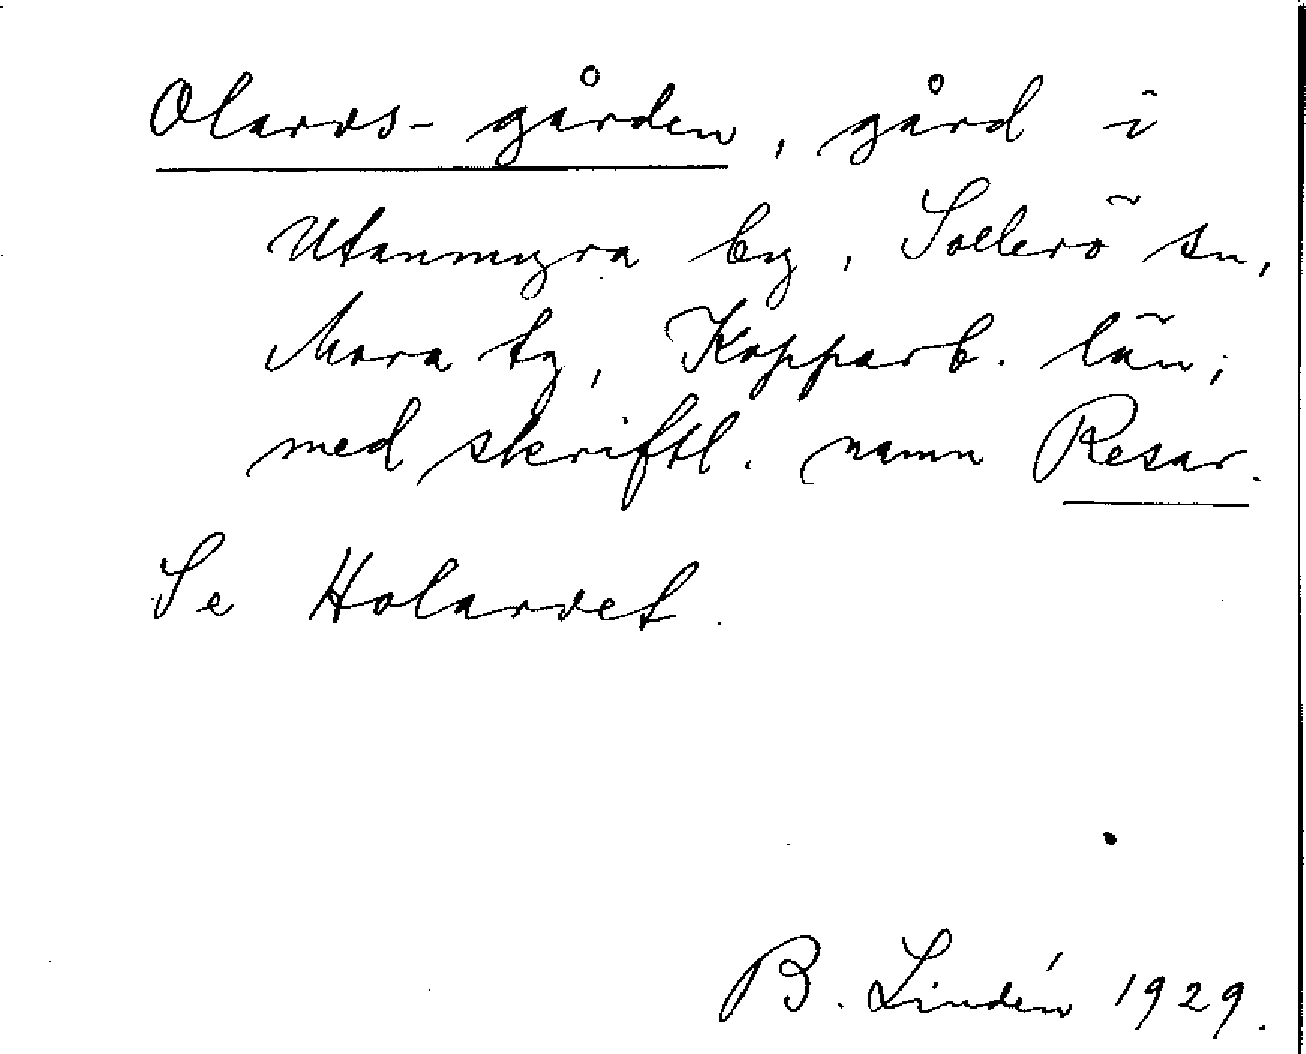 Olarvs-gården, gård i
Utanmyra by, Sollerö sn,
Mora tg, Kopparb. län;
med skriftl. namn Resar.
Se Holarvet.
B. Lindén 1929.